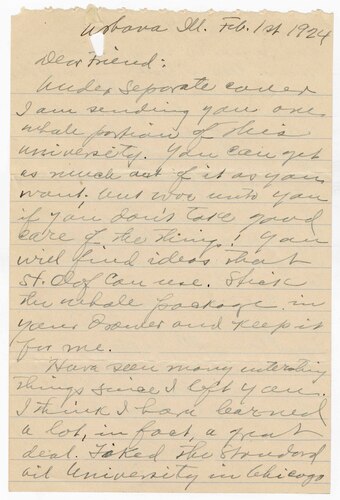 Urbana Ill. Feb. 1st 1924
Dear Friend:
Under separate cover
I am sending you one
whole portion of this
university. You can get
as much out of it as you
want. but woe unto you
if you don't take good
care of the things. You
will find ideas that
St. Olaf can use. Stick
the whole package in
your drawer and keep it
for me.
Have seen many intersting
things since I left you.
I think I have learned
a lot, in fact, a great
deal. the Standard
oil University in Chicago